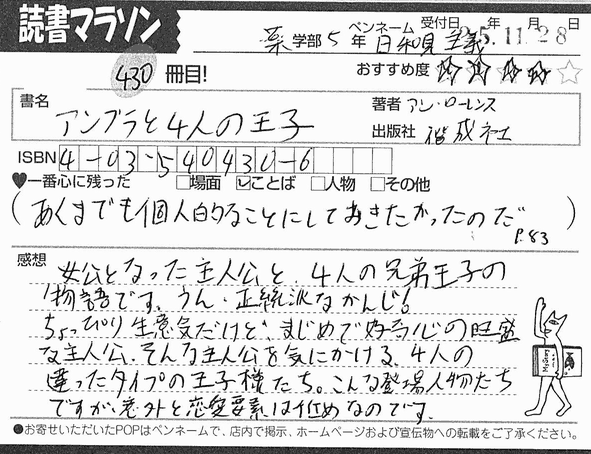 読書マラソン
薬学部5年 ペンネーム 日和見主義 受付日 05年11月28日
430冊目!
おすすめ度 ★★★★☆
書名 アンブラと4人の王子
著者 アン・ローレンス
出版社 偕成社
ISBN 4-03-540430-6
♥一番心に残った □場面 ☑ことば □人物 □その他
(あくまでも個人的なことにしておきたかったのだ P.83)
感想
女公となった主人公と、4人の兄弟王子の
物語です。うん、正統派なかんじ!
ちょっぴり生意気だけど、まじめで好奇心の旺盛
な主人公、そんな主人公を気にかける、4人の
違ったタイプの王子様たち。こんな登場人物たち
ですが、意外と恋愛要素は低めなのです。
●お寄せいただいたPOPはペンネームで、店内で掲示、ホームページおよび宣伝物への転載をご了承ください。